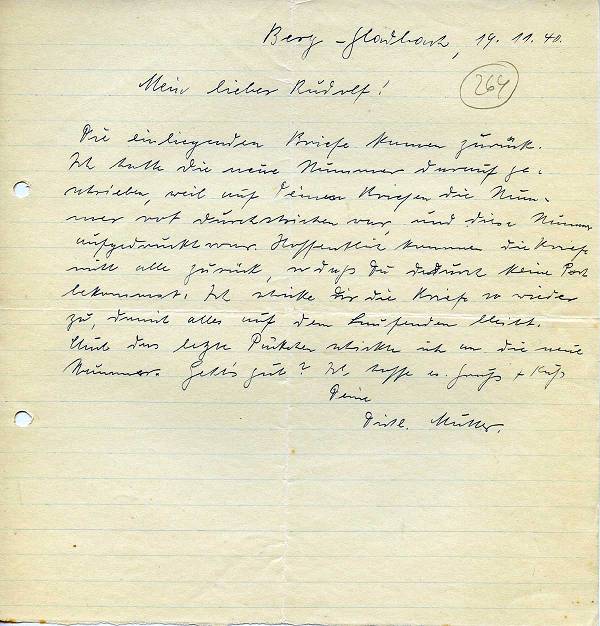 Berg-Gladbach, 19.11.40.
264
Mein lieber Rudolf!
Die einliegenden Briefe kamen zurück.
Ich hatte die neue Nummer darauf ge-
schrieben, weil auf Deinen Briefen die Num-
mer rot durchstrichen war, und diese Nummer
aufgedruckt war. Hoffentlich kommen die Briefe
nicht alle zurück, so daß Du dadurch keine Post
bekommst. Ich schicke Dir die Briefe so wieder
zu, damit alles auf dem Laufenden bleibt.
Auch das letzte Päckchen schickte ich an die neue
Nummer. Geht's gut? Ich hoffe es. Gruß + Kuß
Deine
Mutter.